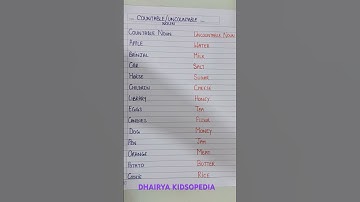 COUNTABLE/UNCOUNTABLE
NOUN
COUNTABLE NOUN UNCOUNTABLE NOUN
APPLE WATER
BRINJAL MILK
CAR SALT
HORSE SUGAR
CHILDREN CHEESE
LIBRARY HONEY
EGGS TEA
CANDIES FLOUR
DOG MONEY
PEN JAM
ORANGE MEAT
POTATO BUTTER
CHAIR RICE
DHAIRYA KIDSOPEDIA